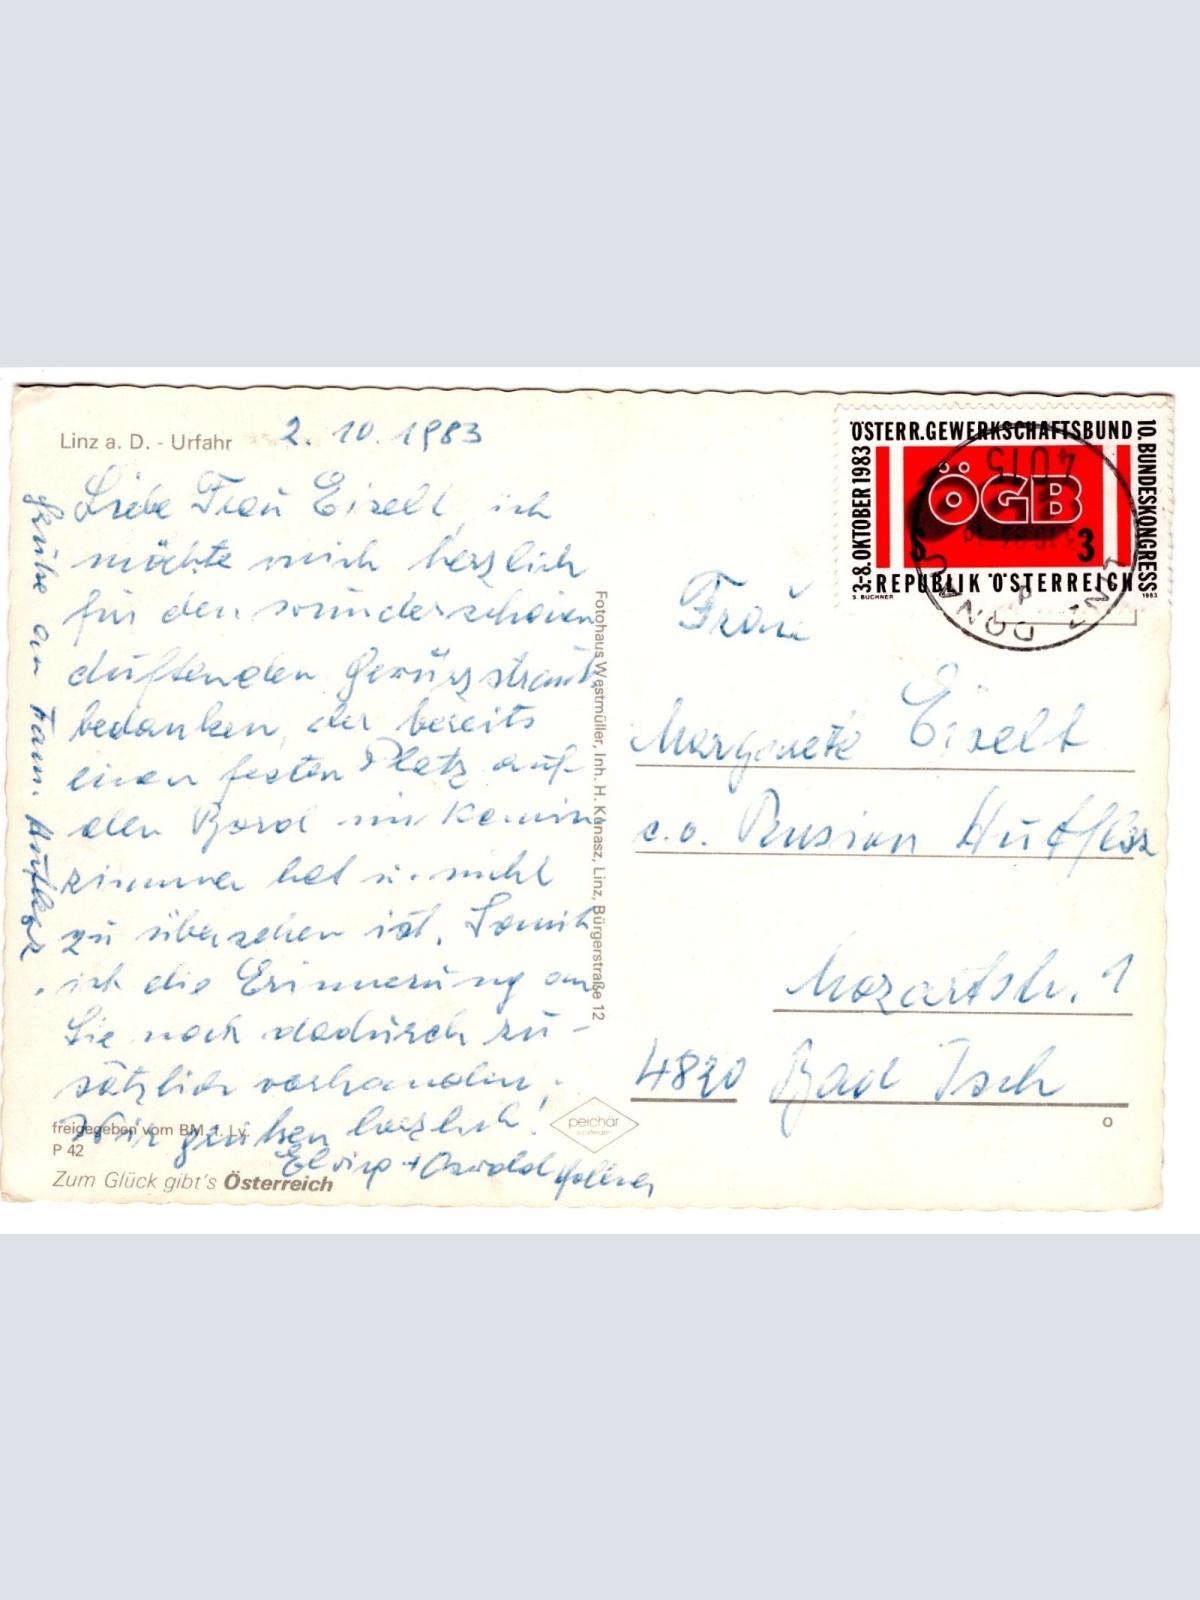 Linz a. D. - Urfahr 2. 10. 1983
Liebe Frau Eiselt, ich
möchte mich herzlich
für den wunderschönen
duftenden Gewürzstrauß
bedanken, der bereits
einen festen Platz auf
den Bord im Kamin
zimmer hat u. nicht
zu übersehen ist. Somit
ist die Erinnerung an
Sie noch dadurch zu-
sätzlich vorhanden.
Wir grüßen herzlich!
Elvira + Oswald
Grüße an Fam.
freigegeben vom BM. f. Lv.
P 42
Zum Glück gibt's Österreich
Fotohaus Westmüller, Inh. H. Kunasz, Linz, Bürgerstraße 12
peichär
ÖSTERR. GEWERKSCHAFTSBUND
10. BUNDESKONGRESS
3-8. OKTOBER 1983
ÖGB
S 3
REPUBLIK ÖSTERREICH
S. BUCHNER 1983
4015
LINZ DONAU
Frau
Margarete Eiselt
c.o. Pension
Mozartstr. 1
4820 Bad Isch